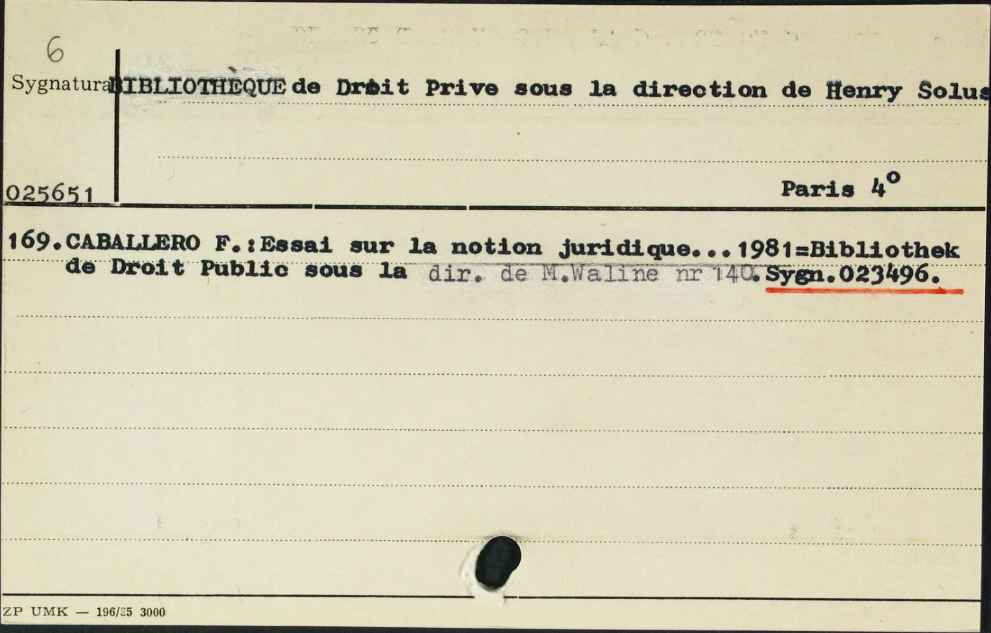 6
Sygnatura BIBLIOTHÈQUE de Droit Prive sous la direction de Henry Solus
025651 Paris 4º
169.CABALLERO F.:Essai sur la notion juridique...1981=Bibliothek
de Droit Public sous la dir. de M.Waline nr 140.Sygn.023496.
ZP UMK — 196/85 3000